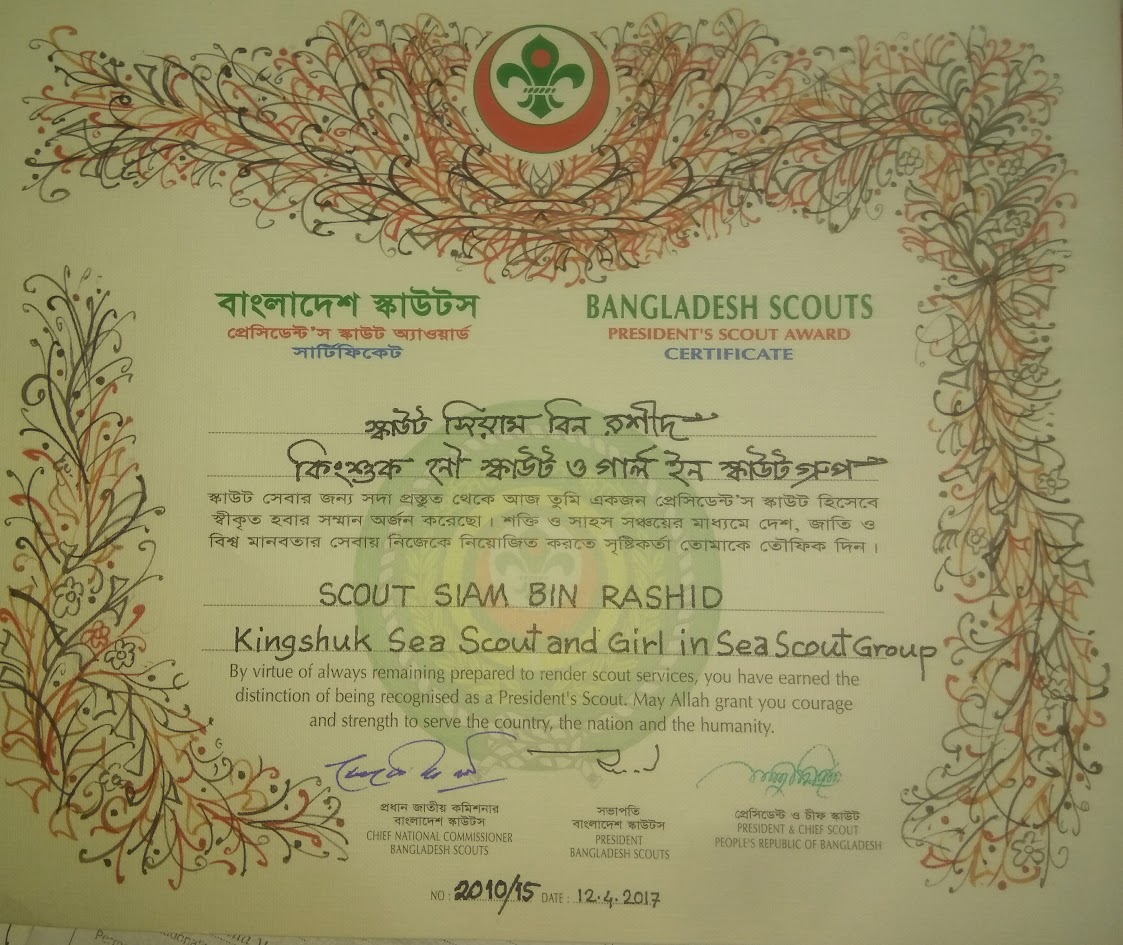 বাংলাদেশ স্কাউটস
প্রেসিডেন্ট'স স্কাউট অ্যাওয়ার্ড
সার্টিফিকেট
BANGLADESH SCOUTS
PRESIDENT'S SCOUT AWARD
CERTIFICATE
স্কাউট সিয়াম বিন রশীদ
কিংশুক নৌ স্কাউট ও গার্ল ইন স্কাউট গ্রুপ
স্কাউট সেবার জন্য সদা প্রস্তুত থেকে আজ তুমি একজন প্রেসিডেন্ট'স স্কাউট হিসেবে
স্বীকৃত হবার সম্মান অর্জন করেছো। শক্তি ও সাহস সঞ্চয়ের মাধ্যমে দেশ, জাতি ও
বিশ্ব মানবতার সেবায় নিজেকে নিয়োজিত করতে সৃষ্টিকর্তা তোমাকে তৌফিক দিন।
SCOUT SIAM BIN RASHID
Kingshuk Sea Scout and Girl in Sea Scout Group
By virtue of always remaining prepared to render scout services, you have earned the
distinction of being recognised as a President's Scout. May Allah grant you courage
and strength to serve the country, the nation and the humanity.
প্রধান জাতীয় কমিশনার
বাংলাদেশ স্কাউটস
CHIEF NATIONAL COMMISSIONER
BANGLADESH SCOUTS
সভাপতি
বাংলাদেশ স্কাউটস
PRESIDENT
BANGLADESH SCOUTS
প্রেসিডেন্ট ও চীফ স্কাউট
PRESIDENT & CHIEF SCOUT
PEOPLE'S REPUBLIC OF BANGLADESH
NO : 2010/15 DATE : 12.4.2017